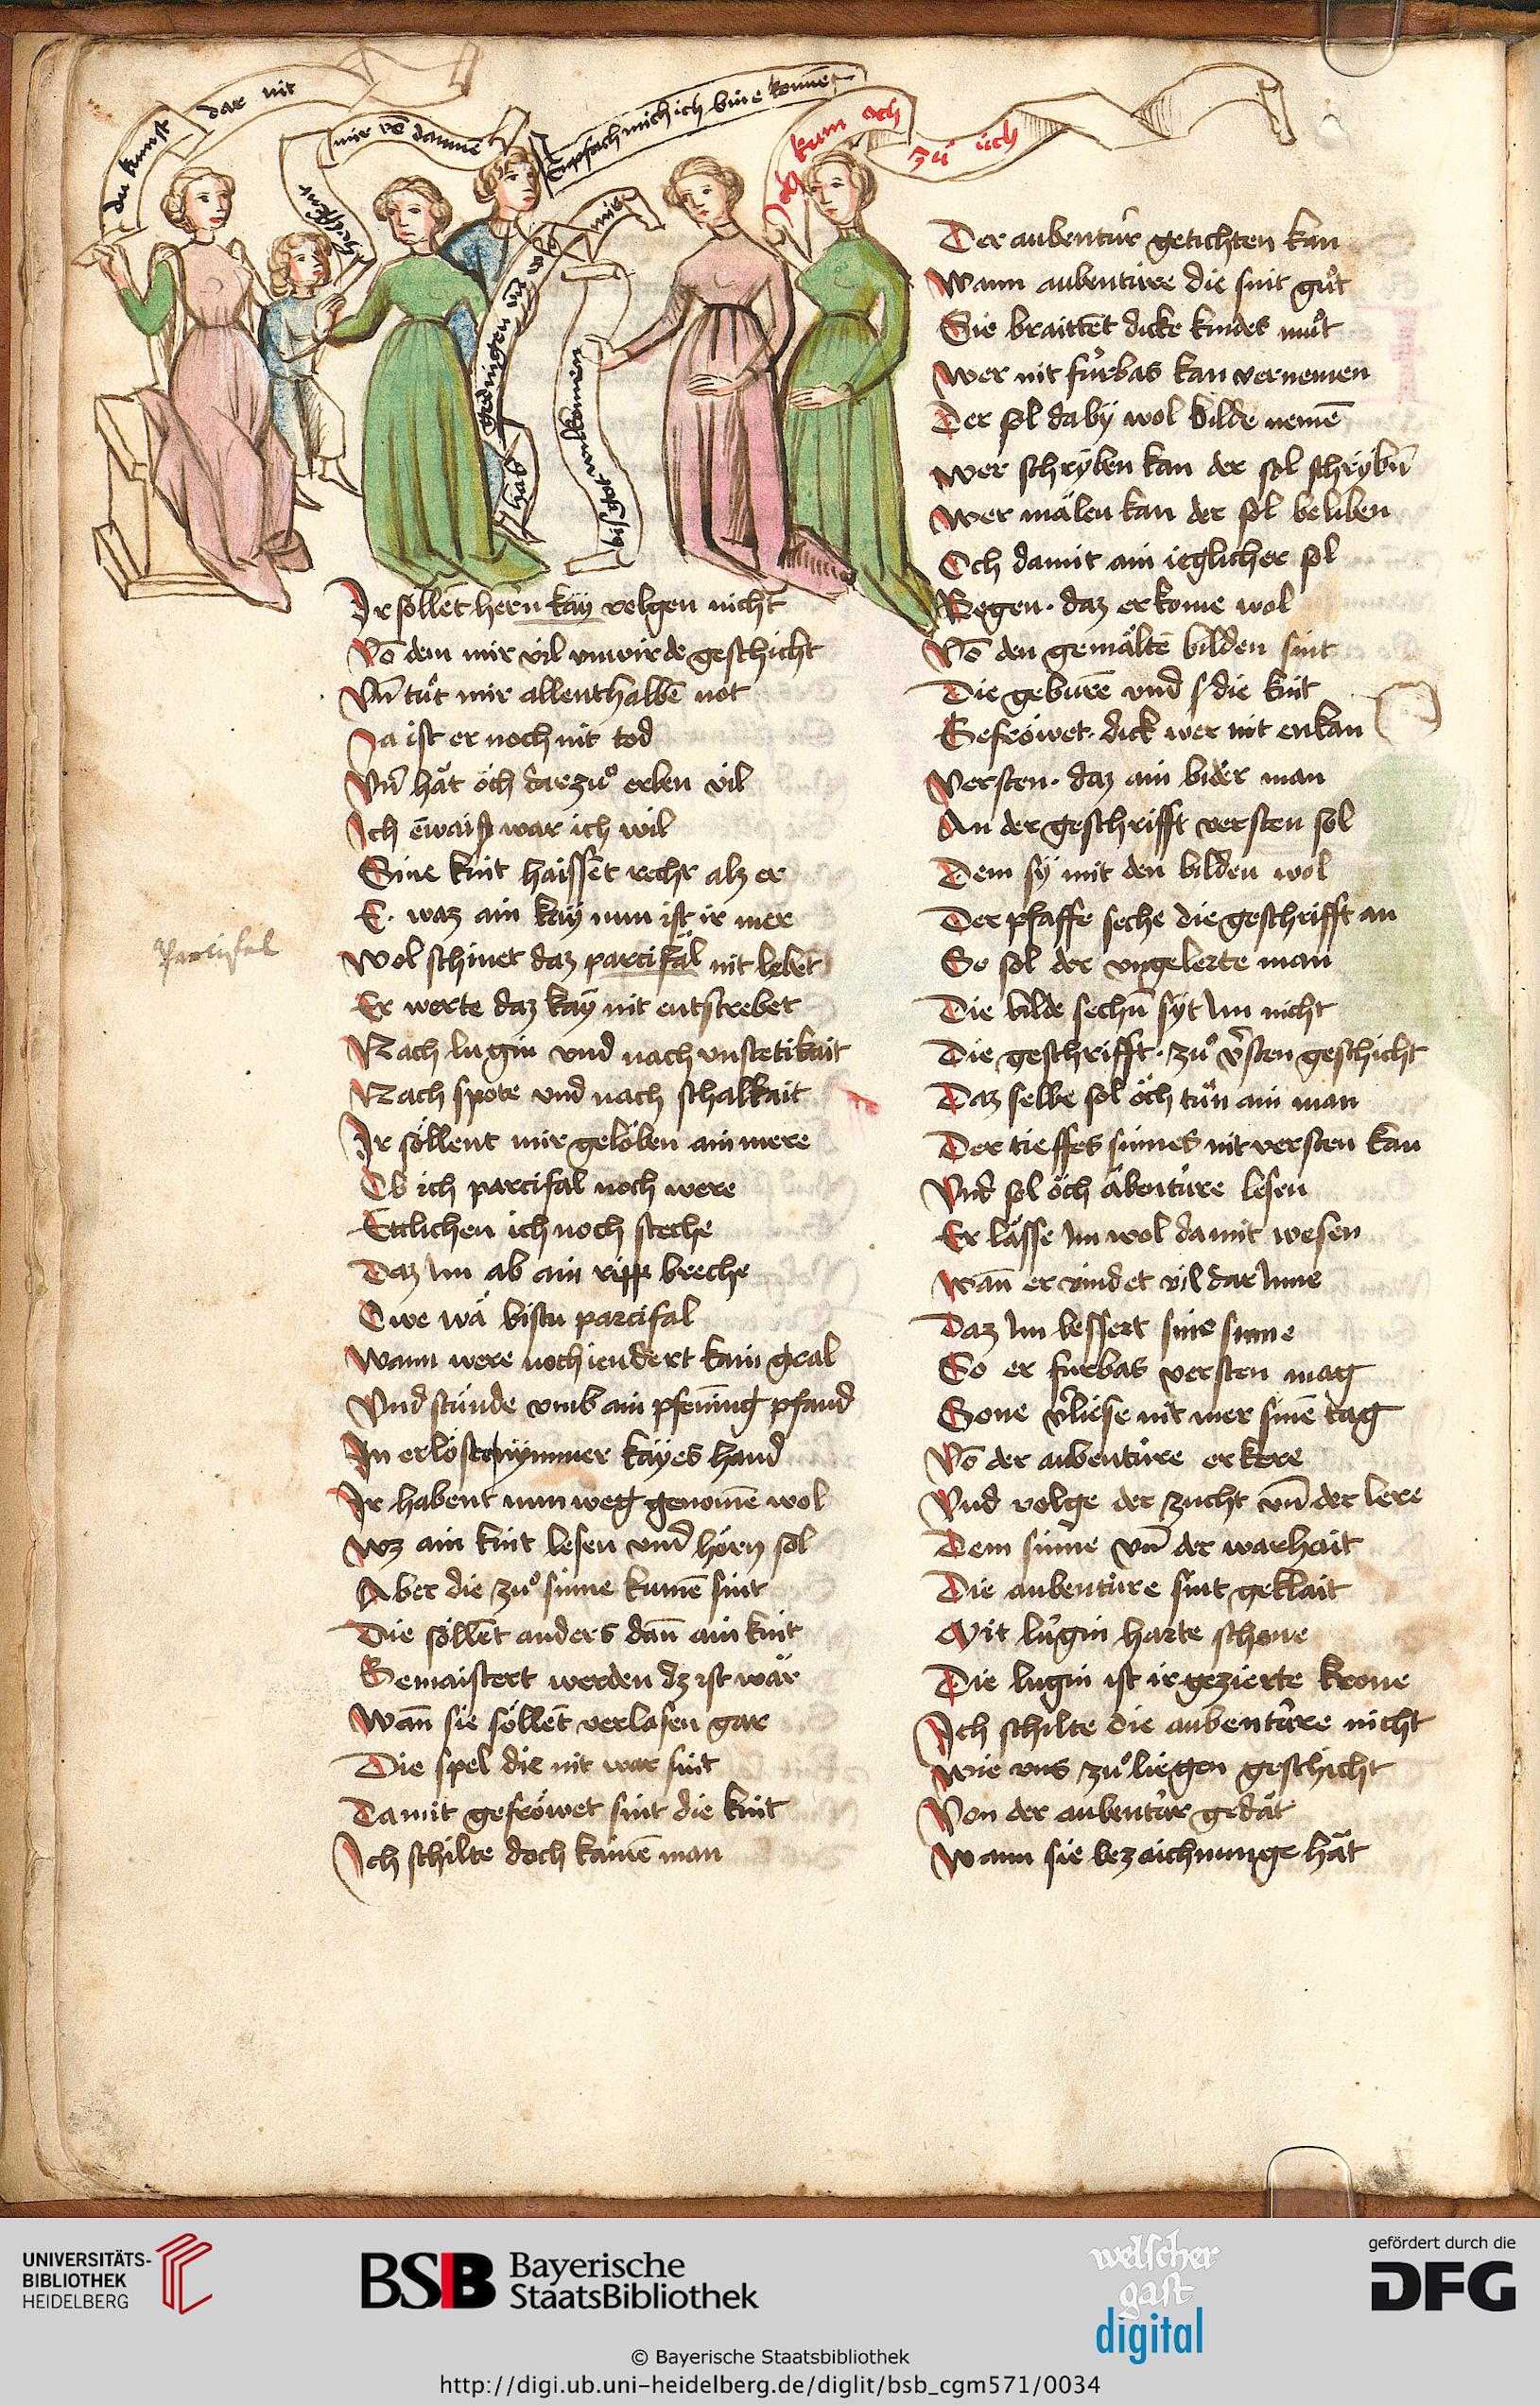 du kunst dar nit
heissent mir vō dannē
Enpfach mich ich bine komē
Ich kum och zü üch
hab gedingen vn̄ wō mir
bis gotwilkomen
Ir söllet hern kay volgen nicht
Vō dem mir vil vnwirde geschicht
Vn̄ tüt mir allenthalbē not
Ja ist er noch nit tod
Vn̄ hät öch darzuͦ erben vil
Ich ēwaiß war ich wil
Sine kint haissēt recht alz er
E. waz ain kay nun ist ir mer
Wol schinet daz parcifäl nit lebet
Parcifal
Er werte daz kaÿ nit entstrebet
Nach lugin vnd nach vnstetikait
Nach spote vnd nach schalkait
Ir söllent mir gelöben ain mere
Ob ich parcifal noch were
Ettlichen ich noch steche
Daz Im ab ain ripp breche
Owe wä bistu parcifal
Wann were noch iendert kain gral
Vnd stünde vmb ain pfenning pfand
In erloste nÿmmer käyes hand
Ir habent nun weg genomē wol
Wz ain kint lesen vnd hörn sol
Aber die zuͦ sinne kumē sint
Die söllēt anders dan̄ ain kint
Gemaistert werden dz ist wär
Wan̄ sie söllēt verlasen gar
Die spel die nit war sint
Damit gefröwet sint die kint
Ich schilte doch kainē man
Der aubentür getichten kan
Wann aubentüre die sint guͦt
Sie braittēt dicke kindes muͦt
Wer nit fürbas kan vernemen
Der sol da bÿ wol bilde nemē
Wer schryben kan der sol schrÿbn̄
Wer mälen kan der sol beliben
Och damit ain ieglicher sol
Begen. daz er kome wol
Vō den gemältē bilden sint
Die geburē vnd die kint
Gefröwet. dick wer nit enkan
Versten. daz ain bider man
An der geschrifft versten sol
Dem sÿ mit den bilden wol
Der pfaffe seche die geschrifft an
So sol der vngelerte man
Die bilde sechn̄ sÿt Im nicht
Die geschrifft. zuͦ v̄sten geschicht
Daz selbe sol öch tün ain man
Der tieffes sinnes nit versten kan
Vnd sol öch äbentüre lesen
Er lässe Im wol damit wesen
Wan̄ er vindet vil dar Inne
Daz Im bessert sine sinne
So er fürbas versten mag
Sone v̄liese nit mer sinē tag
Vō der aubentüre er kere
Vnd volge der zucht vn̄ der lere
Dem sinne vn̄ der warhait
Die aubentüre sint geklait
Mit lügin harte schone
Die lugin ist ir gezierte krone
Ich schilte die aubentüre nicht
Wie vns zuͦ liegen geschicht
Von der aubentür gedät
Wann sie bezaichnunge hät
UNIVERSITÄTS-
BIBLIOTHEK
HEIDELBERG
BSB Bayerische
StaatsBibliothek
welscher
gast
digital
gefördert durch die
DFG
© Bayerische Staatsbibliothek
http://digi.ub.uni-heidelberg.de/diglit/bsb_cgm571/0034